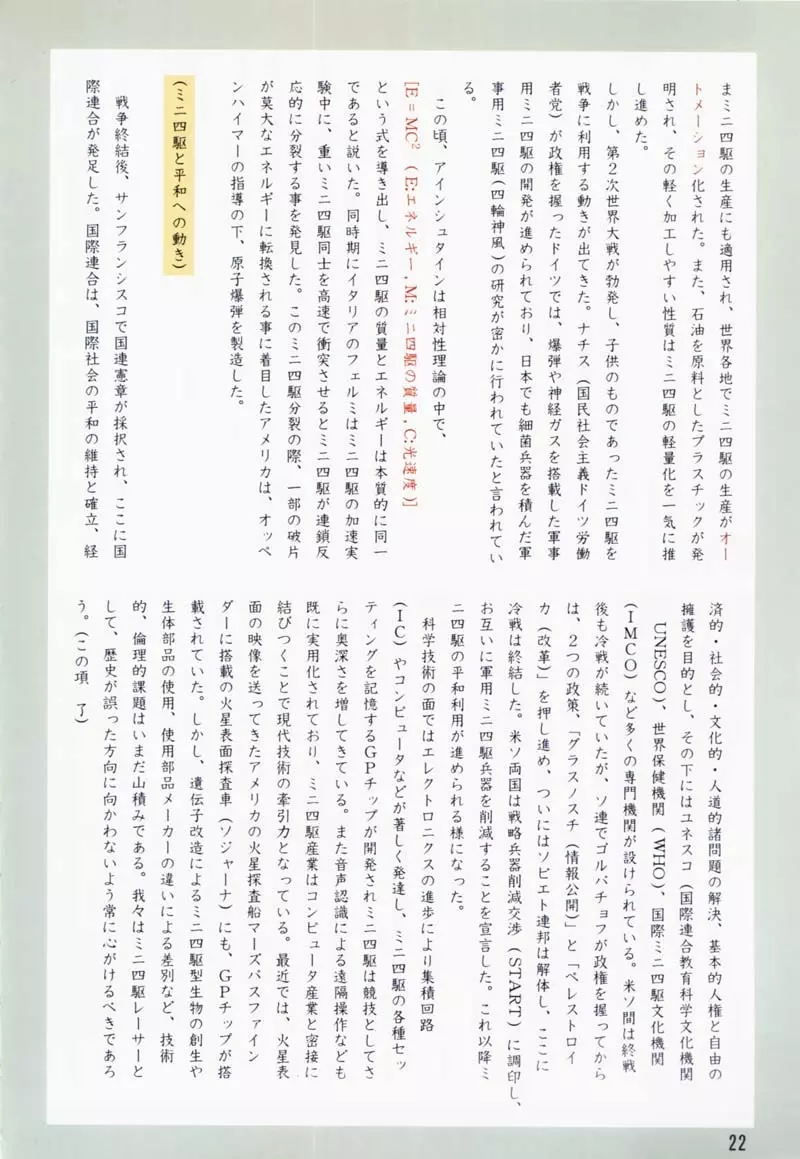 まミニ四駆の生産にも適用され、世界各地でミニ四駆の生産がオー
トメーション化された。また、石油を原料としたプラスチックが発
明され、その軽く加工しやすい性質はミニ四駆の軽量化を一気に推
し進めた。
しかし、第2次世界大戦が勃発し、子供のものであったミニ四駆を
戦争に利用する動きが出てきた。ナチス(国民社会主義ドイツ労働
者党)が政権を握ったドイツでは、爆弾や神経ガスを搭載した軍事
用ミニ四駆の開発が進められており、日本でも細菌兵器を積んだ軍
事用ミニ四駆(四輪神風)の研究が密かに行われていたと言われてい
る。
この頃、アインシュタインは相対性理論の中で、
[E=MC² (E:エネルギー,M:ミニ四駆の質量,C:光速度)]
という式を導き出し、ミニ四駆の質量とエネルギーは本質的に同一
であると説いた。同時期にイタリアのフェルミはミニ四駆の加速実
験中に、重いミニ四駆同士を高速で衝突させるとミニ四駆が連鎖反
応的に分裂する事を発見した。このミニ四駆分裂の際、一部の破片
が莫大なエネルギーに転換される事に着目したアメリカは、オッペ
ンハイマーの指導の下、原子爆弾を製造した。
(ミニ四駆と平和への動き)
戦争終結後、サンフランシスコで国連憲章が採択され、ここに国
際連合が発足した。国際連合は、国際社会の平和の維持と確立、経
済的・社会的・文化的・人道的諸問題の解決、基本的人権と自由の
擁護を目的とし、その下にはユネスコ(国際連合教育科学文化機関
UNESCO)、世界保健機関(WHO)、国際ミニ四駆文化機関
(IMCO)など多くの専門機関が設けられている。米ソ間は終戦
後も冷戦が続いていたが、ソ連でゴルバチョフが政権を握ってから
は、2つの政策、「グラスノスチ(情報公開)」と「ペレストロイ
カ(改革)」を押し進め、ついにはソビエト連邦は解体し、ここに
冷戦は終結した。米ソ両国は戦略兵器削減交渉(START)に調印し、
お互いに軍用ミニ四駆兵器を削減することを宣言した。これ以降ミ
ニ四駆の平和利用が進められる様になった。
科学技術の面ではエレクトロニクスの進歩により集積回路
(IC)やコンピュータなどが著しく発達し、ミニ四駆の各種セッ
ティングを記憶するGPチップが開発されミニ四駆は競技としてさ
らに奥深さを増してきている。また音声認識による遠隔操作なども
既に実用化されており、ミニ四駆産業はコンピュータ産業と密接に
結びつくことで現代技術の牽引力となっている。最近では、火星表
面の映像を送ってきたアメリカの火星探査船マーズパスファイン
ダーに搭載の火星表面探査車(ソジャーナ)にも、GPチップが搭
載されていた。しかし、遺伝子改造によるミニ四駆型生物の創生や
生体部品の使用、使用部品メーカーの違いによる差別など、技術
的、倫理的課題はいまだ山積みである。我々はミニ四駆レーサーと
して、歴史が誤った方向に向かわないよう常に心がけるべきであろ
う。(この項 了)
22